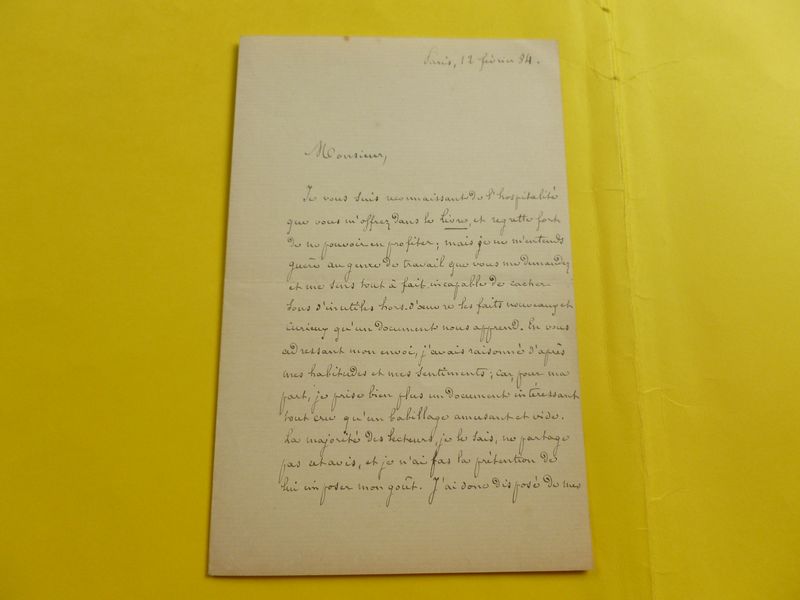 Paris, 12 février 84.
Monsieur,
Je vous suis reconnaissant de l'hospitalité
que vous m'offrez dans le Livre, et regrette fort
de ne pouvoir en profiter ; mais je ne m'entends
guère au genre de travail que vous me demandez
et me sens tout à fait incapable de cacher
sous d'inutiles hors-d'œuvre les faits nouveaux et
curieux qu'un document nous apprend. En vous
adressant mon envoi, j'avais raisonné d'après
mes habitudes et mes sentiments ; car, pour ma
part, je prise bien plus un document intéressant
tout cru qu'un babillage amusant et vide.
La majorité des lecteurs, je le sais, ne partage
pas cet avis, et je n'ai pas la prétention de
lui imposer mon goût. J'ai donc disposé de mes